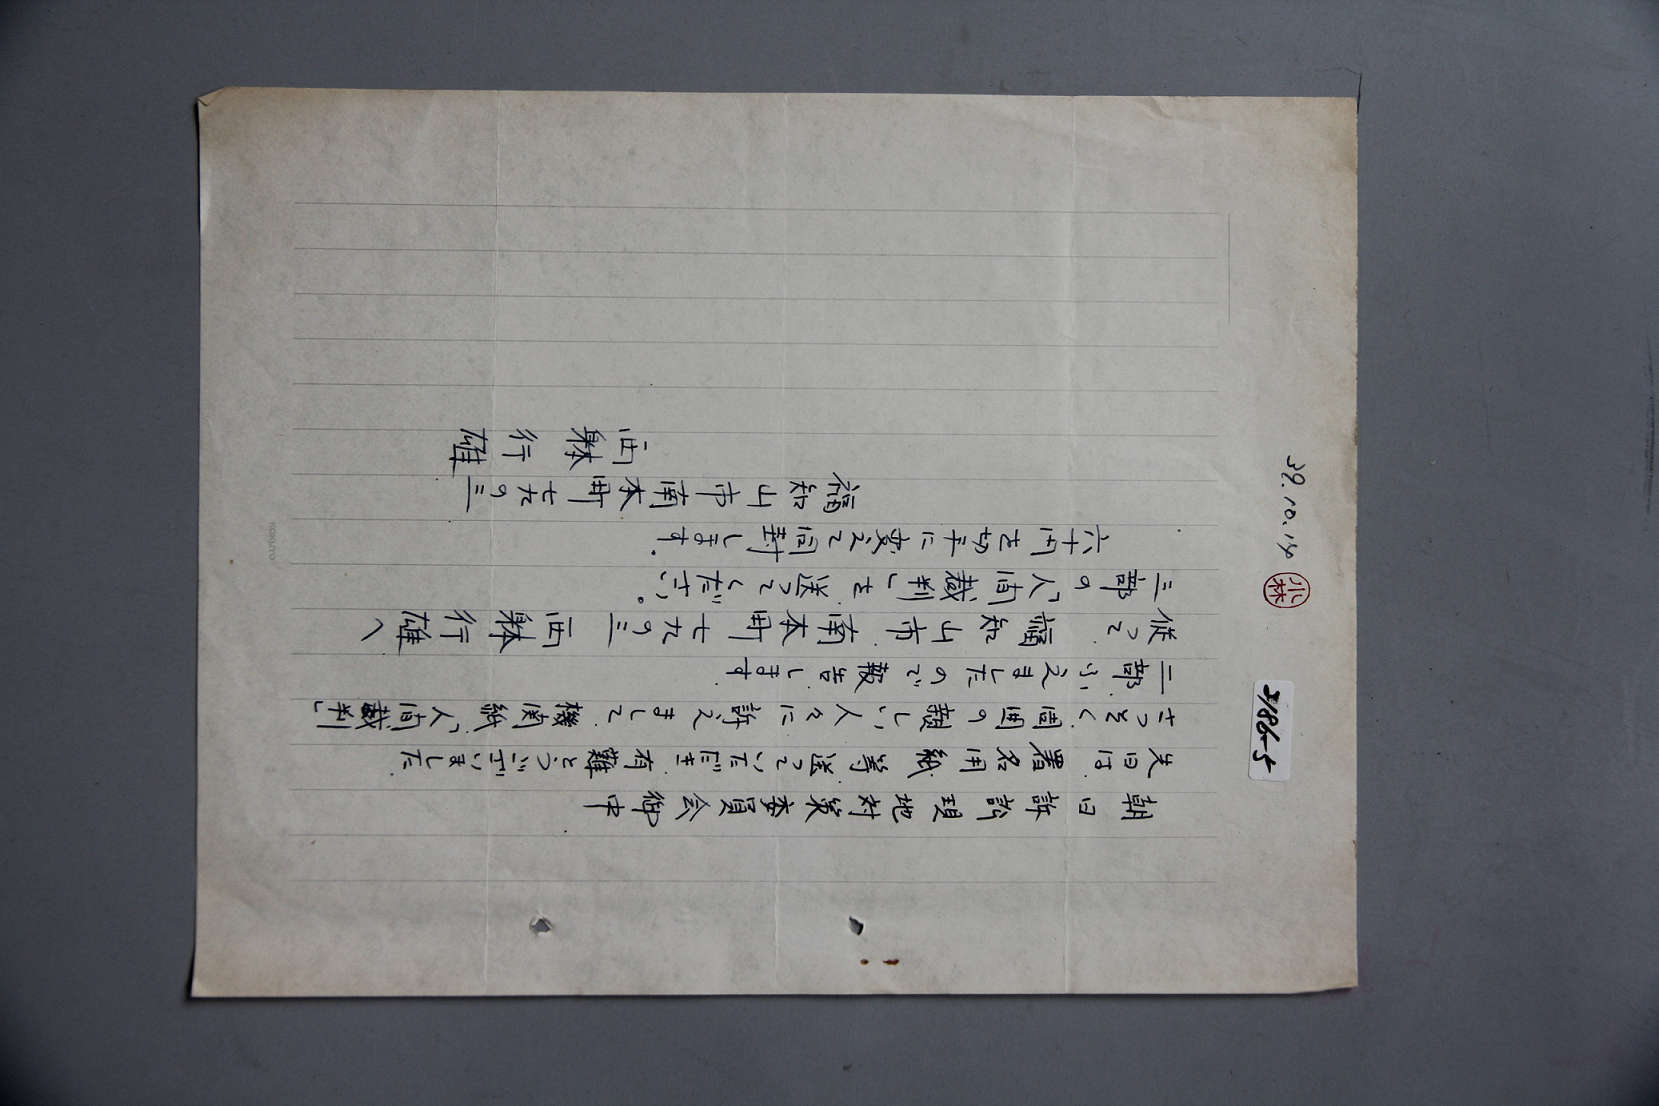 朝日訴訟現地対策委員会御中
先日は署名用紙等送っていただき有難とうございました
さっそく固囲の親しい人々に訴えまして機関紙「人間裁判」
二部ふえましたので報告します
従って福知山市南本町七九の三 西躰行雄へ
三部の「人間裁判」を送ってください。
六十円を切手に変えて同封します。
福知山市南本町七九の三
西躰行雄
39.10.14
小林
3186-5